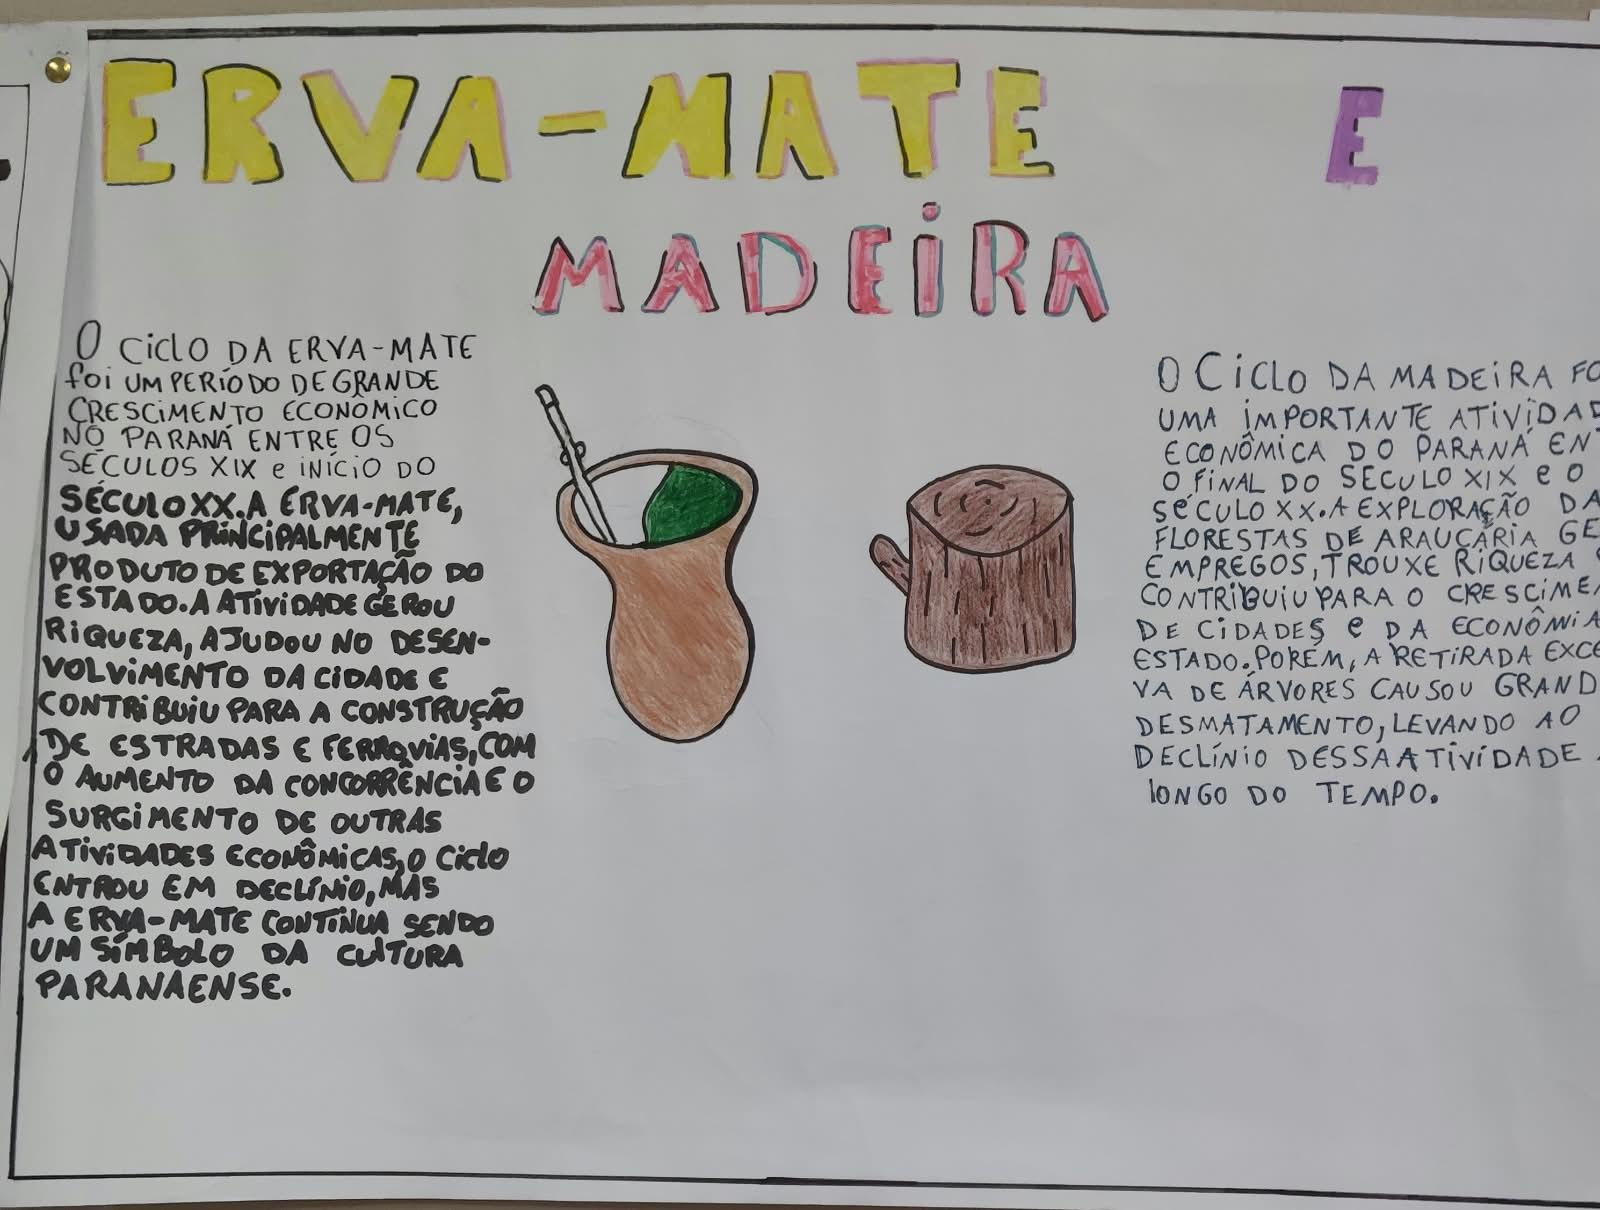 ERVA-MATE E
MADEIRA
O CiClO DA ERVA-MATE
foi UM PERÍODO DE GRANDE
CRESCIMENTO ECONÔMICO
NO PARANÁ ENTRE OS
SÉCULOS XIX e INÍCIO DO
SÉCULO XX. A ERVA-MATE,
USADA PRINCIPALMENTE
PRODUTO DE EXPORTAÇÃO DO
ESTADO. A ATIVIDADE GEROU
RIQUEZA, AJUDOU NO DESEN-
VOLVIMENTO DA CIDADE E
CONTRIBUIU PARA A CONSTRUÇÃO
DE ESTRADAS E FERROVIAS, COM
O AUMENTO DA CONCORRÊNCIA E O
SURGIMENTO DE OUTRAS
ATIVIDADES ECONÔMICAS, O CIClO
ENTROU EM DECLÍNIO, MAS
A ERVA-MATE CONTINUA SENDO
UM SÍMBOLO DA CULTURA
PARANAENSE.
O CiClO DA MADEIRA FO
UMA IMPORTANTE ATIVIDAD
ECONÔMICA DO PARANÁ EN
O FINAL DO SÉCULO XIX e O
SÉCULO XX. A EXPLORAÇÃO DA
FLORESTAS DE ARAUCÁRIA GE
EMPREGOS, TROUXE RIQUEZA
CONTRIBUIU PARA O CRESCIME
DE CIDADES e DA ECONÔMIA
ESTADO. PORÉM, A RETIRADA EXCE
VA DE ÁRVORES CAUSOU GRAND
DESMATAMENTO, LEVANDO AO
DECLÍNIO DESSA ATIVIDADE
lONGO DO TEMPO.